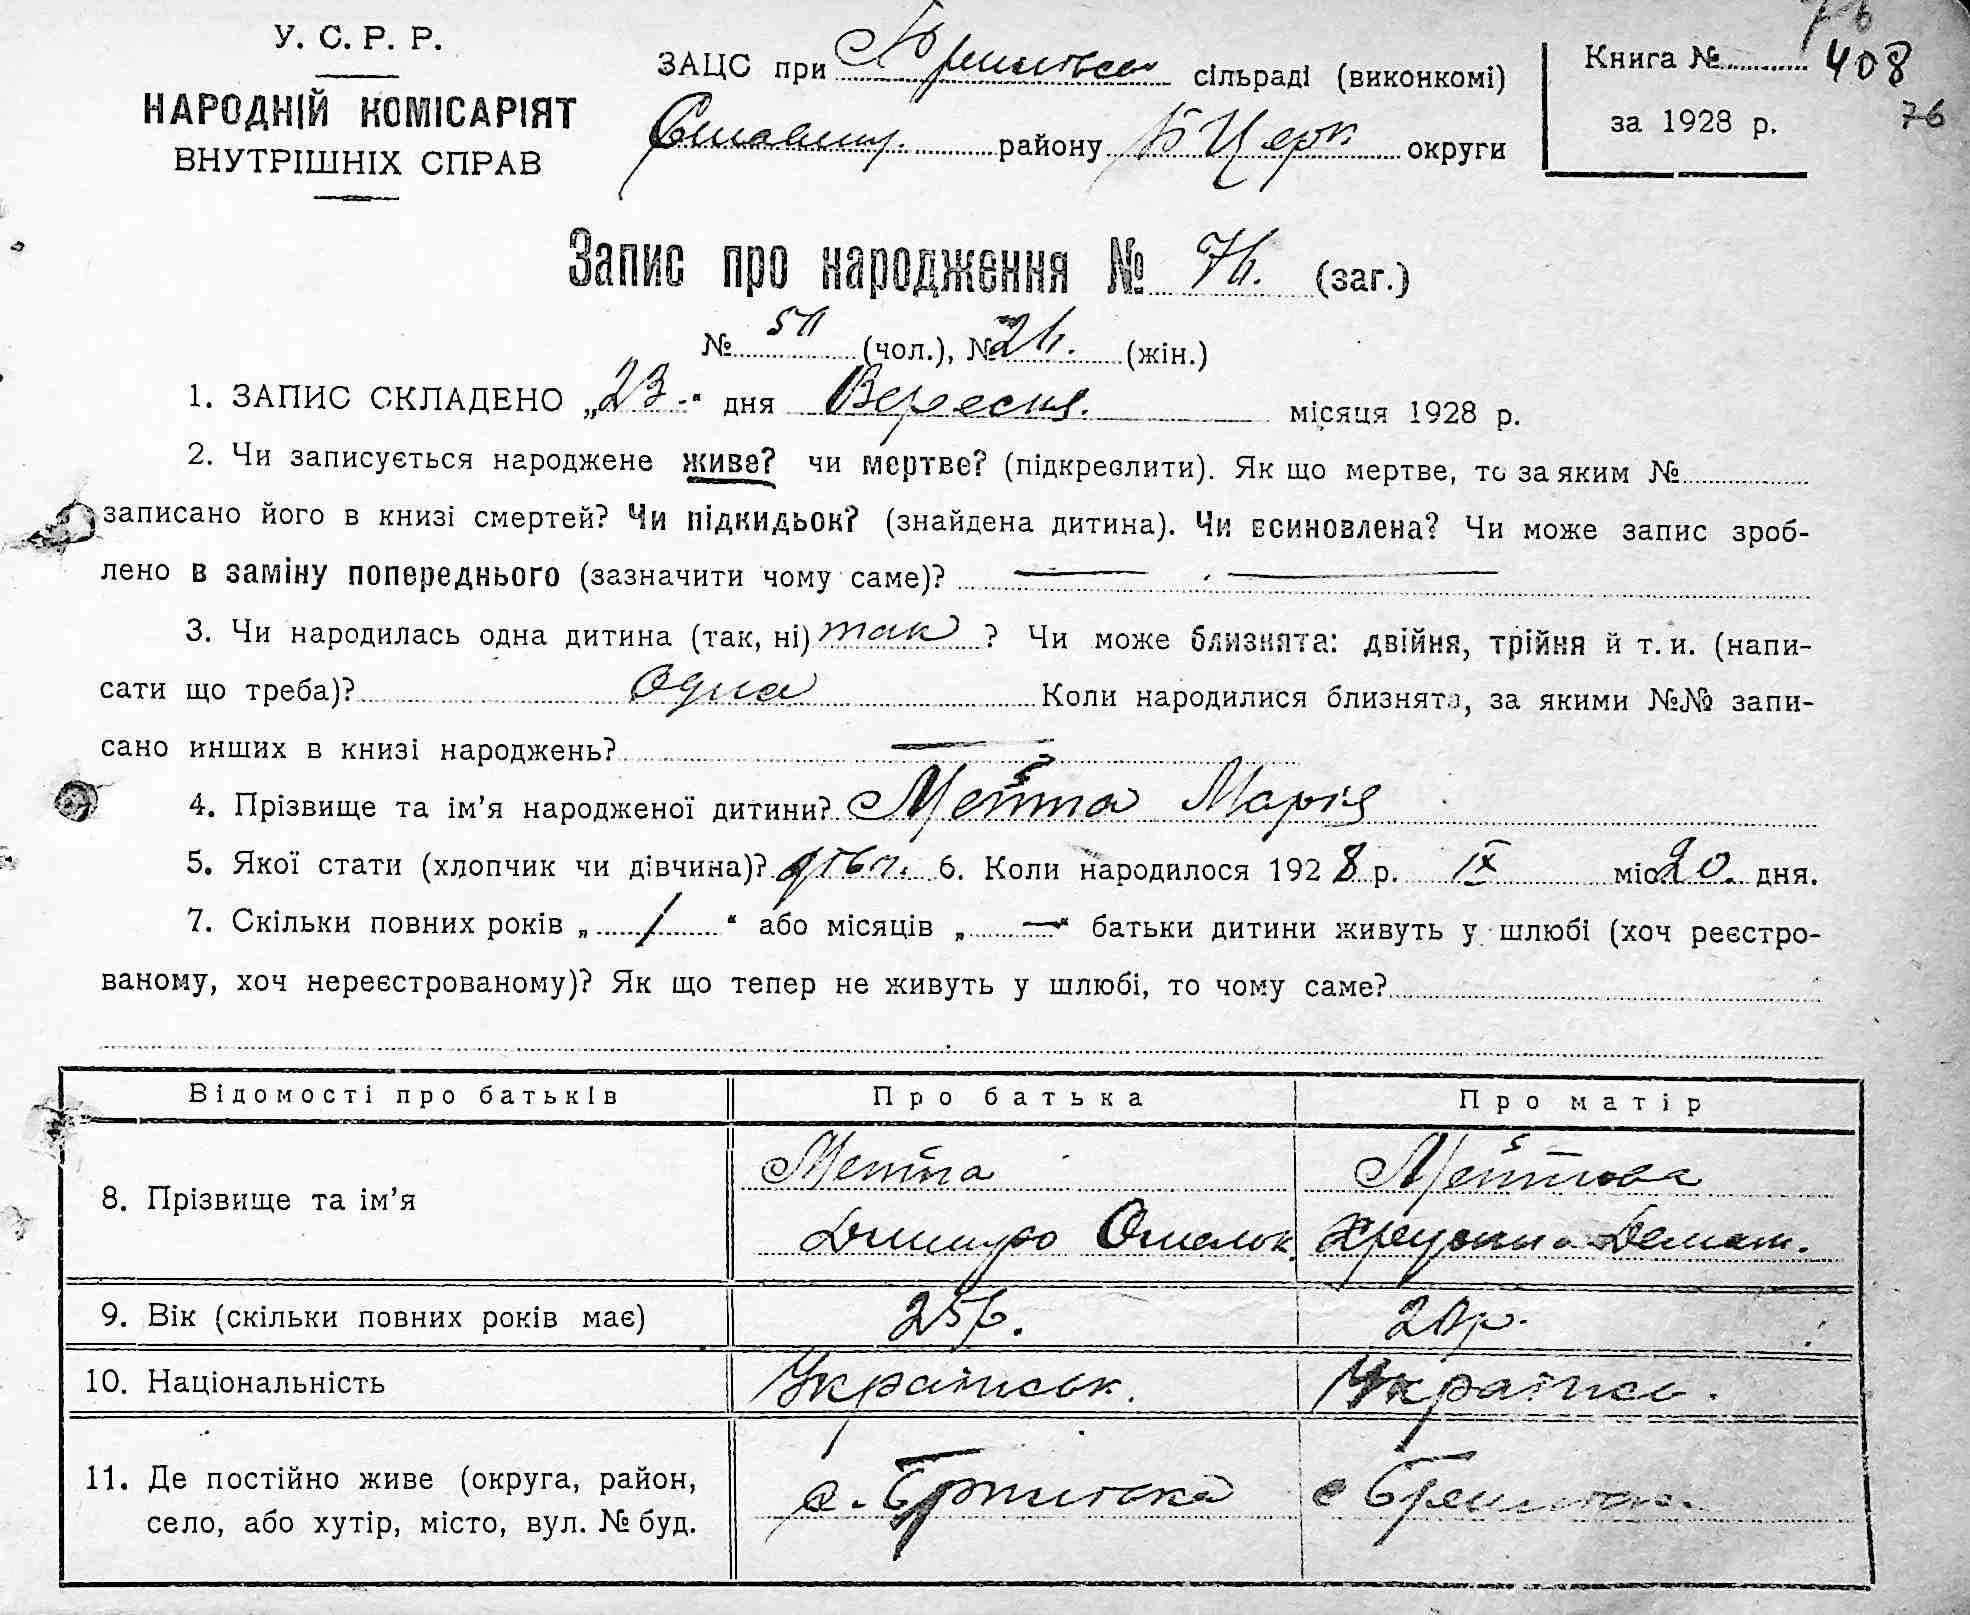 76
У. С. Р. Р.
НАРОДНІЙ КОМІСАРІЯТ
ВНУТРІШНІХ СПРАВ
ЗАЦС при сільраді (виконкомі)
району Б Церк округи
Книга № 408
за 1928 р.
76
Запис про народження № 76. (заг.)
№ (чол.), № 26. (жін.)
1. ЗАПИС СКЛАДЕНО „23.“ дня Вересня. місяця 1928 р.
2. Чи записується народжене живе? чи мертве? (підкреслити). Як що мертве, то за яким №
записано його в книзі смертей? Чи підкидьок? (знайдена дитина). Чи всиновлена? Чи може запис зроб-
лено в заміну попереднього (зазначити чому саме)? — —
3. Чи народилась одна дитина (так, ні) так ? Чи може близнята: двійня, трійня й т. и. (напи-
сати що треба)? одна Коли народилися близнята, за якими №№ запи-
сано инших в книзі народжень? —
4. Прізвище та ім’я народженої дитини? Мейта Марія
5. Якої стати (хлопчик чи дівчина)? дівч. 6. Коли народилося 1928 р. IX міс 20. дня.
7. Скільки повних років „ 1 “ або місяців „ — “ батьки дитини живуть у шлюбі (хоч реєстро-
ваному, хоч нереєстрованому)? Як що тепер не живуть у шлюбі, то чому саме?
Відомості про батьків Про батька Про матір
8. Прізвище та ім’я
Мейта Мейтова
Дмитро Омельк. Демян.
9. Вік (скільки повних років має) 25р. 20р.
10. Національність Українськ. Українсь.
11. Де постійно живе (округа, район,
село, або хутір, місто, вул. № буд.
с. с